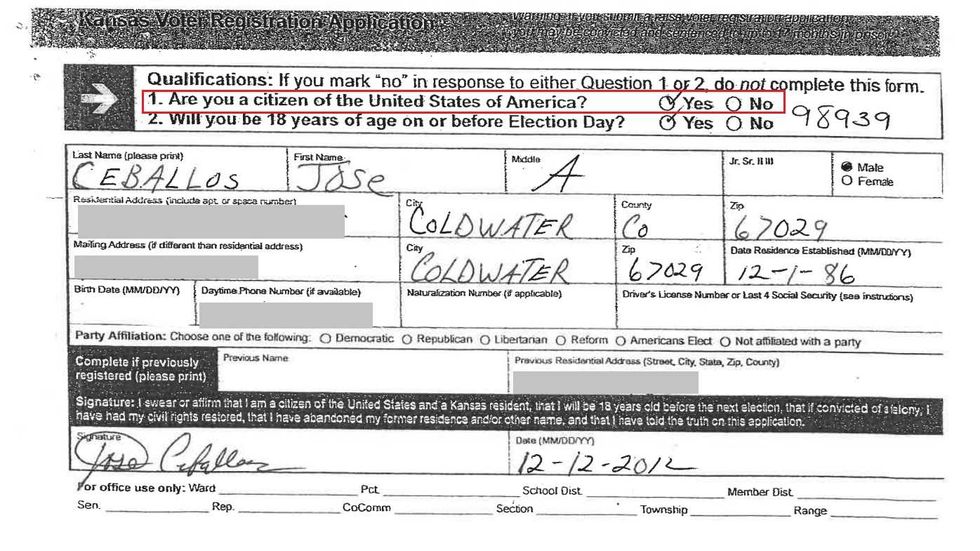 Kansas Voter Registration Application
Warning: If you submit a false voter registration application,
you may be convicted and sentenced to up to 17 months in prison.
Qualifications: If you mark "no" in response to either Question 1 or 2, do not complete this form.
1. Are you a citizen of the United States of America? Yes No
2. Will you be 18 years of age on or before Election Day? Yes No
98939
Last Name (please print) First Name Middle Jr. Sr. II III Male
CEBALLOS Jose A Female
Residential Address (include apt. or space number) City County Zip
COLDWATER Co 67029
Mailing Address (if different than residential address) City Zip Date Residence Established (MM/DD/YY)
COLDWATER 67029 12-1-86
Birth Date (MM/DD/YY) Daytime Phone Number (if available) Naturalization Number (if applicable) Driver's License Number or Last 4 Social Security (see instructions)
Party Affiliation: Choose one of the following: Democratic Republican Libertarian Reform Americans Elect Not affiliated with a party
Complete if previously registered (please print) Previous Name Previous Residential Address (Street, City, State, Zip, County)
Signature: I swear or affirm that I am a citizen of the United States and a Kansas resident, that I will be 18 years old before the next election, that if convicted of a felony, I
have had my civil rights restored, that I have abandoned my former residence and/or other name, and that I have told the truth on this application.
Signature Date (MM/DD/YY)
Jose Ceballos 12-12-2012
For office use only: Ward Pct. School Dist. Member Dist.
Sen. Rep. CoComm Section Township Range